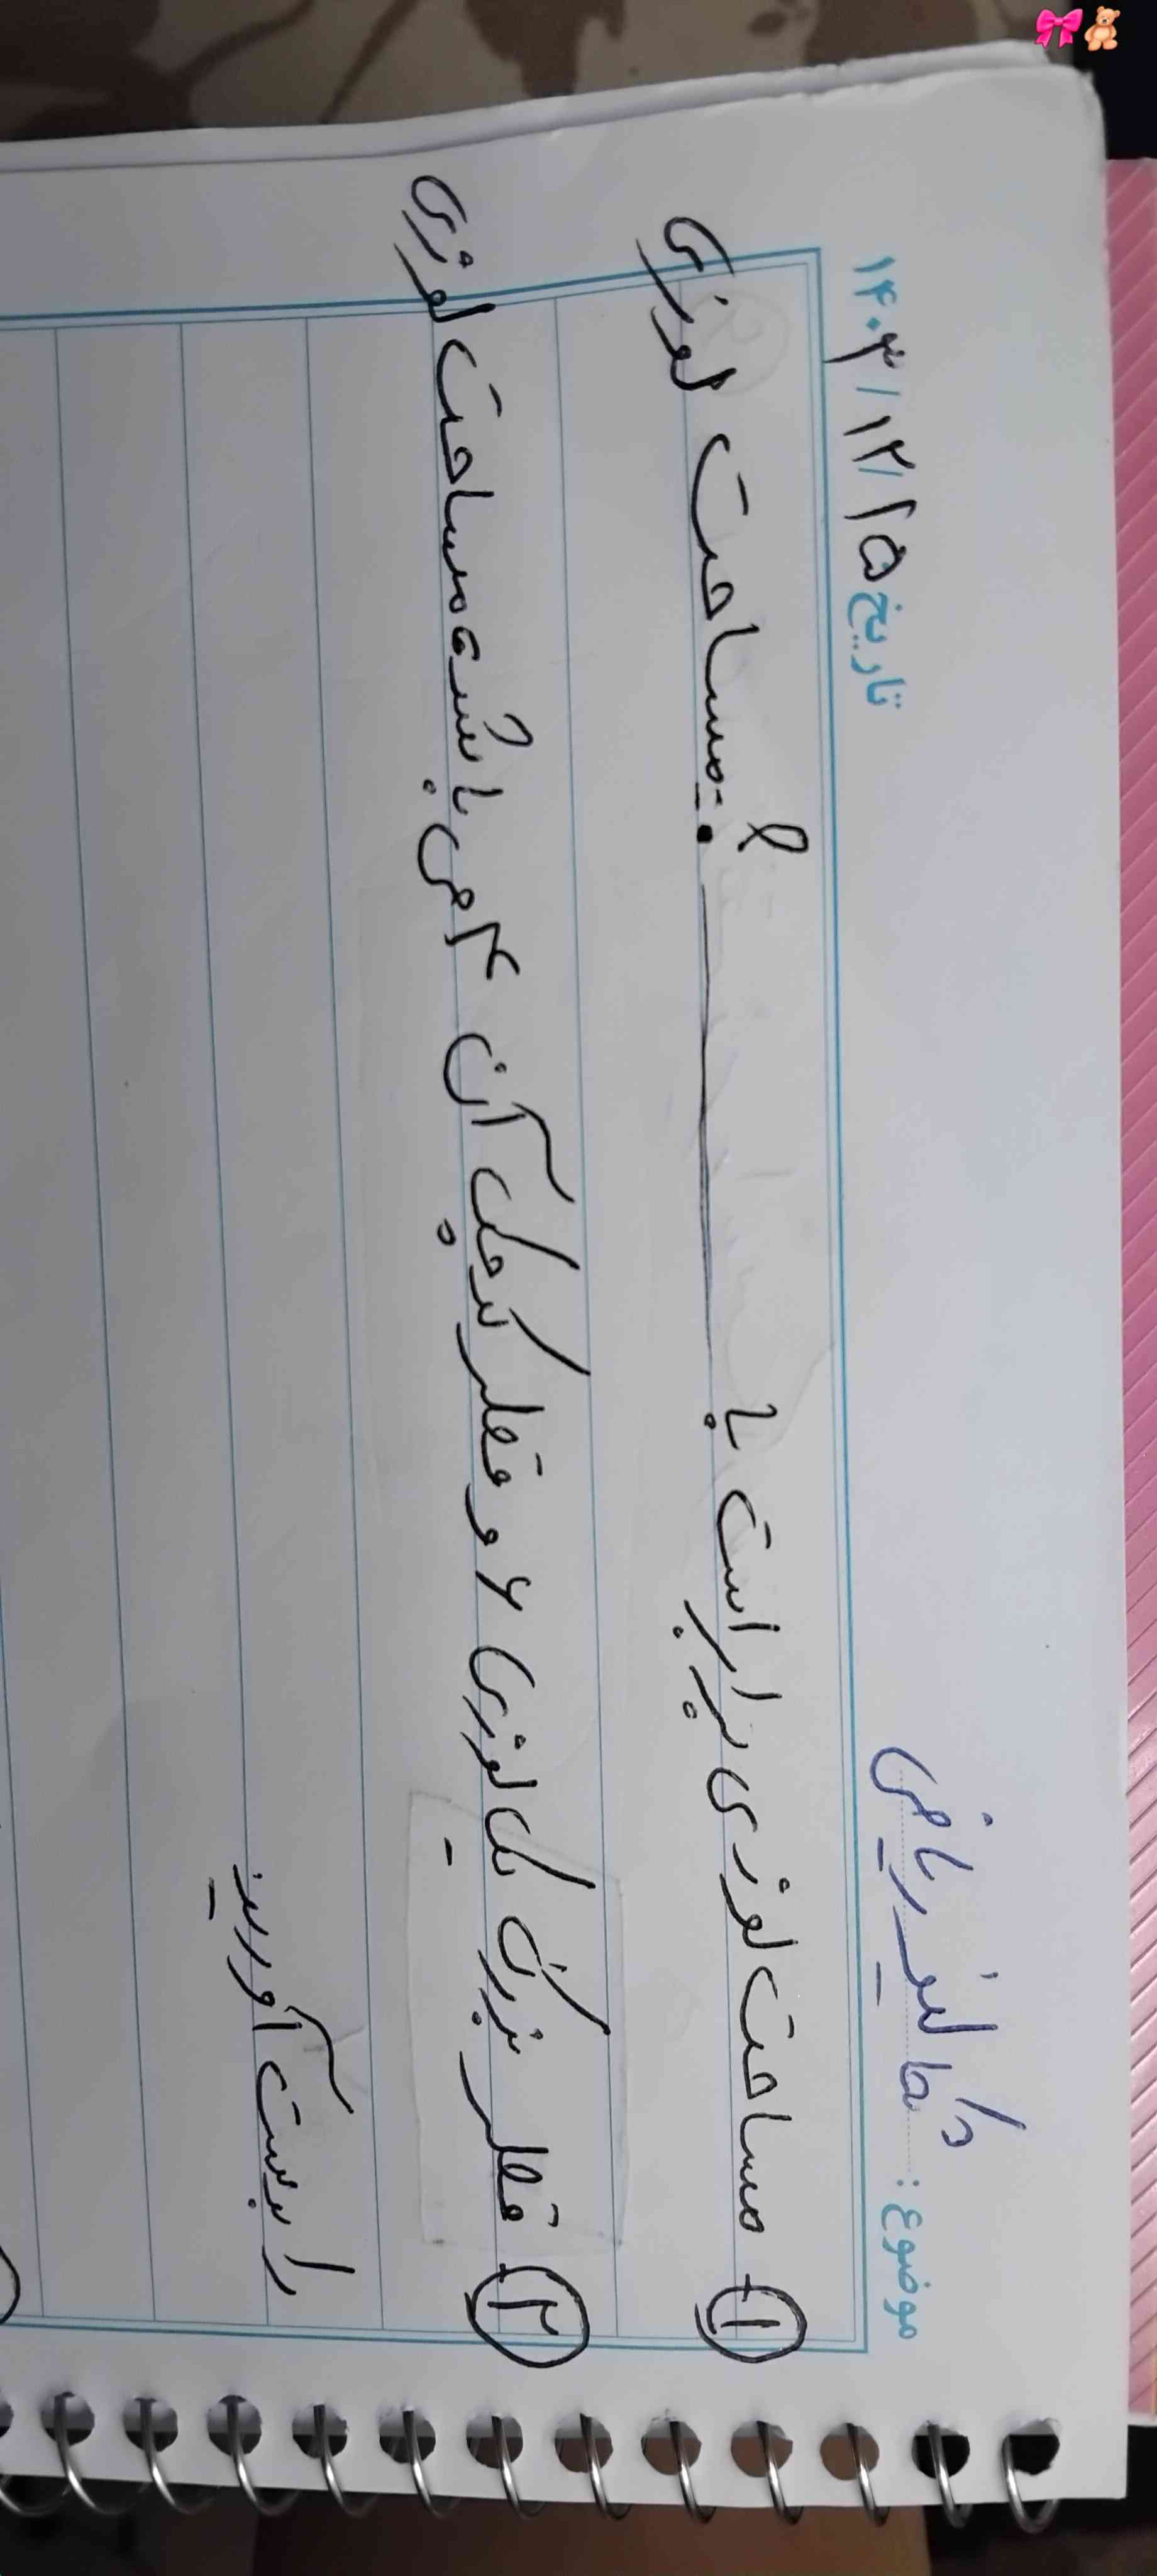 موضوع: املا لیز ریاضی تاریخ ۱۴۰۳/۱۲/۱۵
۱- مساحت لوزی برابر است با ؟ مساحت لوزی
۲- قطر بزرگ یک لوزی ۶ و قطر کوچک آن ۴ می باشد مساحت لوزی
را بدست آورید